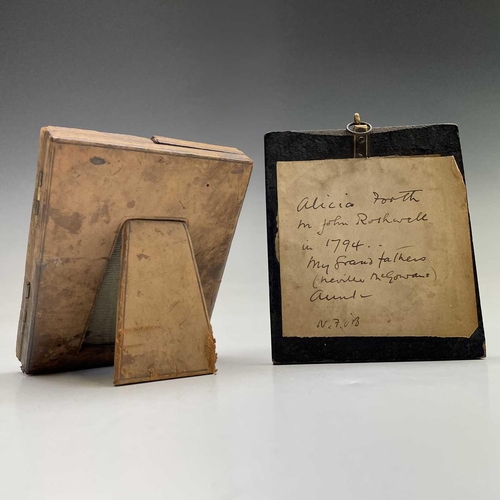 Alicia Forth
m John Rothwell
in 1794..
My Grandfathers
(Neville McGowans)
Aunt-